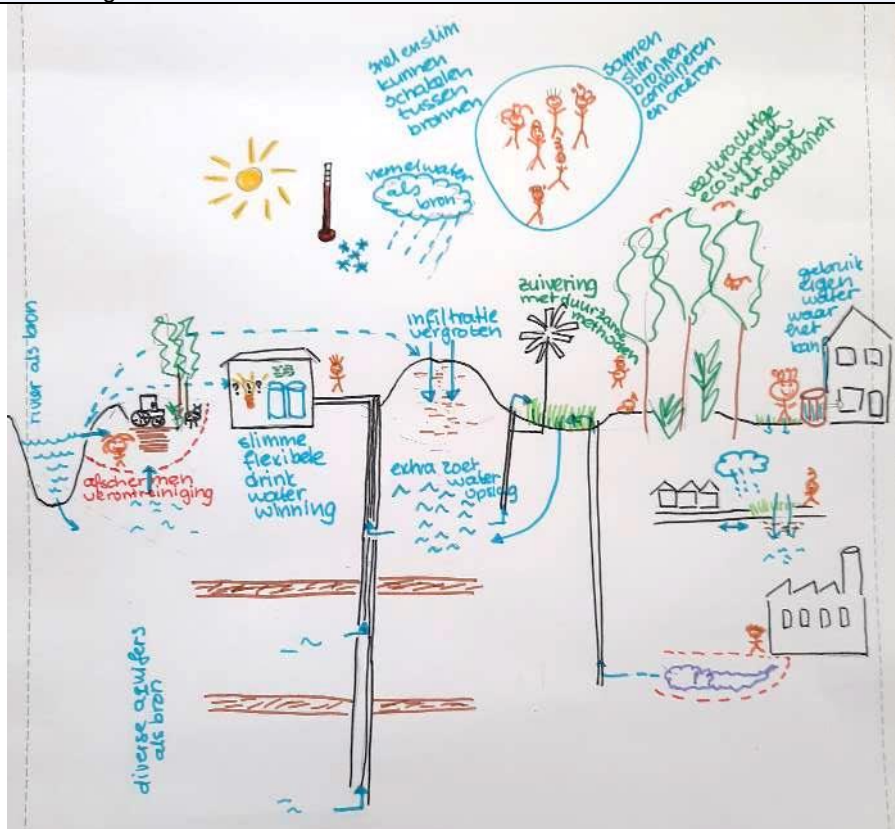 snel en slim
kunnen
schakelen
tussen
bronnen
samen
slim
bronnen
combineren
en creëren
hemelwater
als
bron
veerkrachtige
ecosystemen
met hoge
biodiversiteit
gebruik
eigen
water
waar
het
kan
zuivering
met duurzame
methoden
infiltratie
vergroten
rivier als bron
? ? ? ?
afschermen
verontreiniging
slimme
flexibele
drink
water
winning
extra zoet
water
opslag
diverse aquifers
als bron